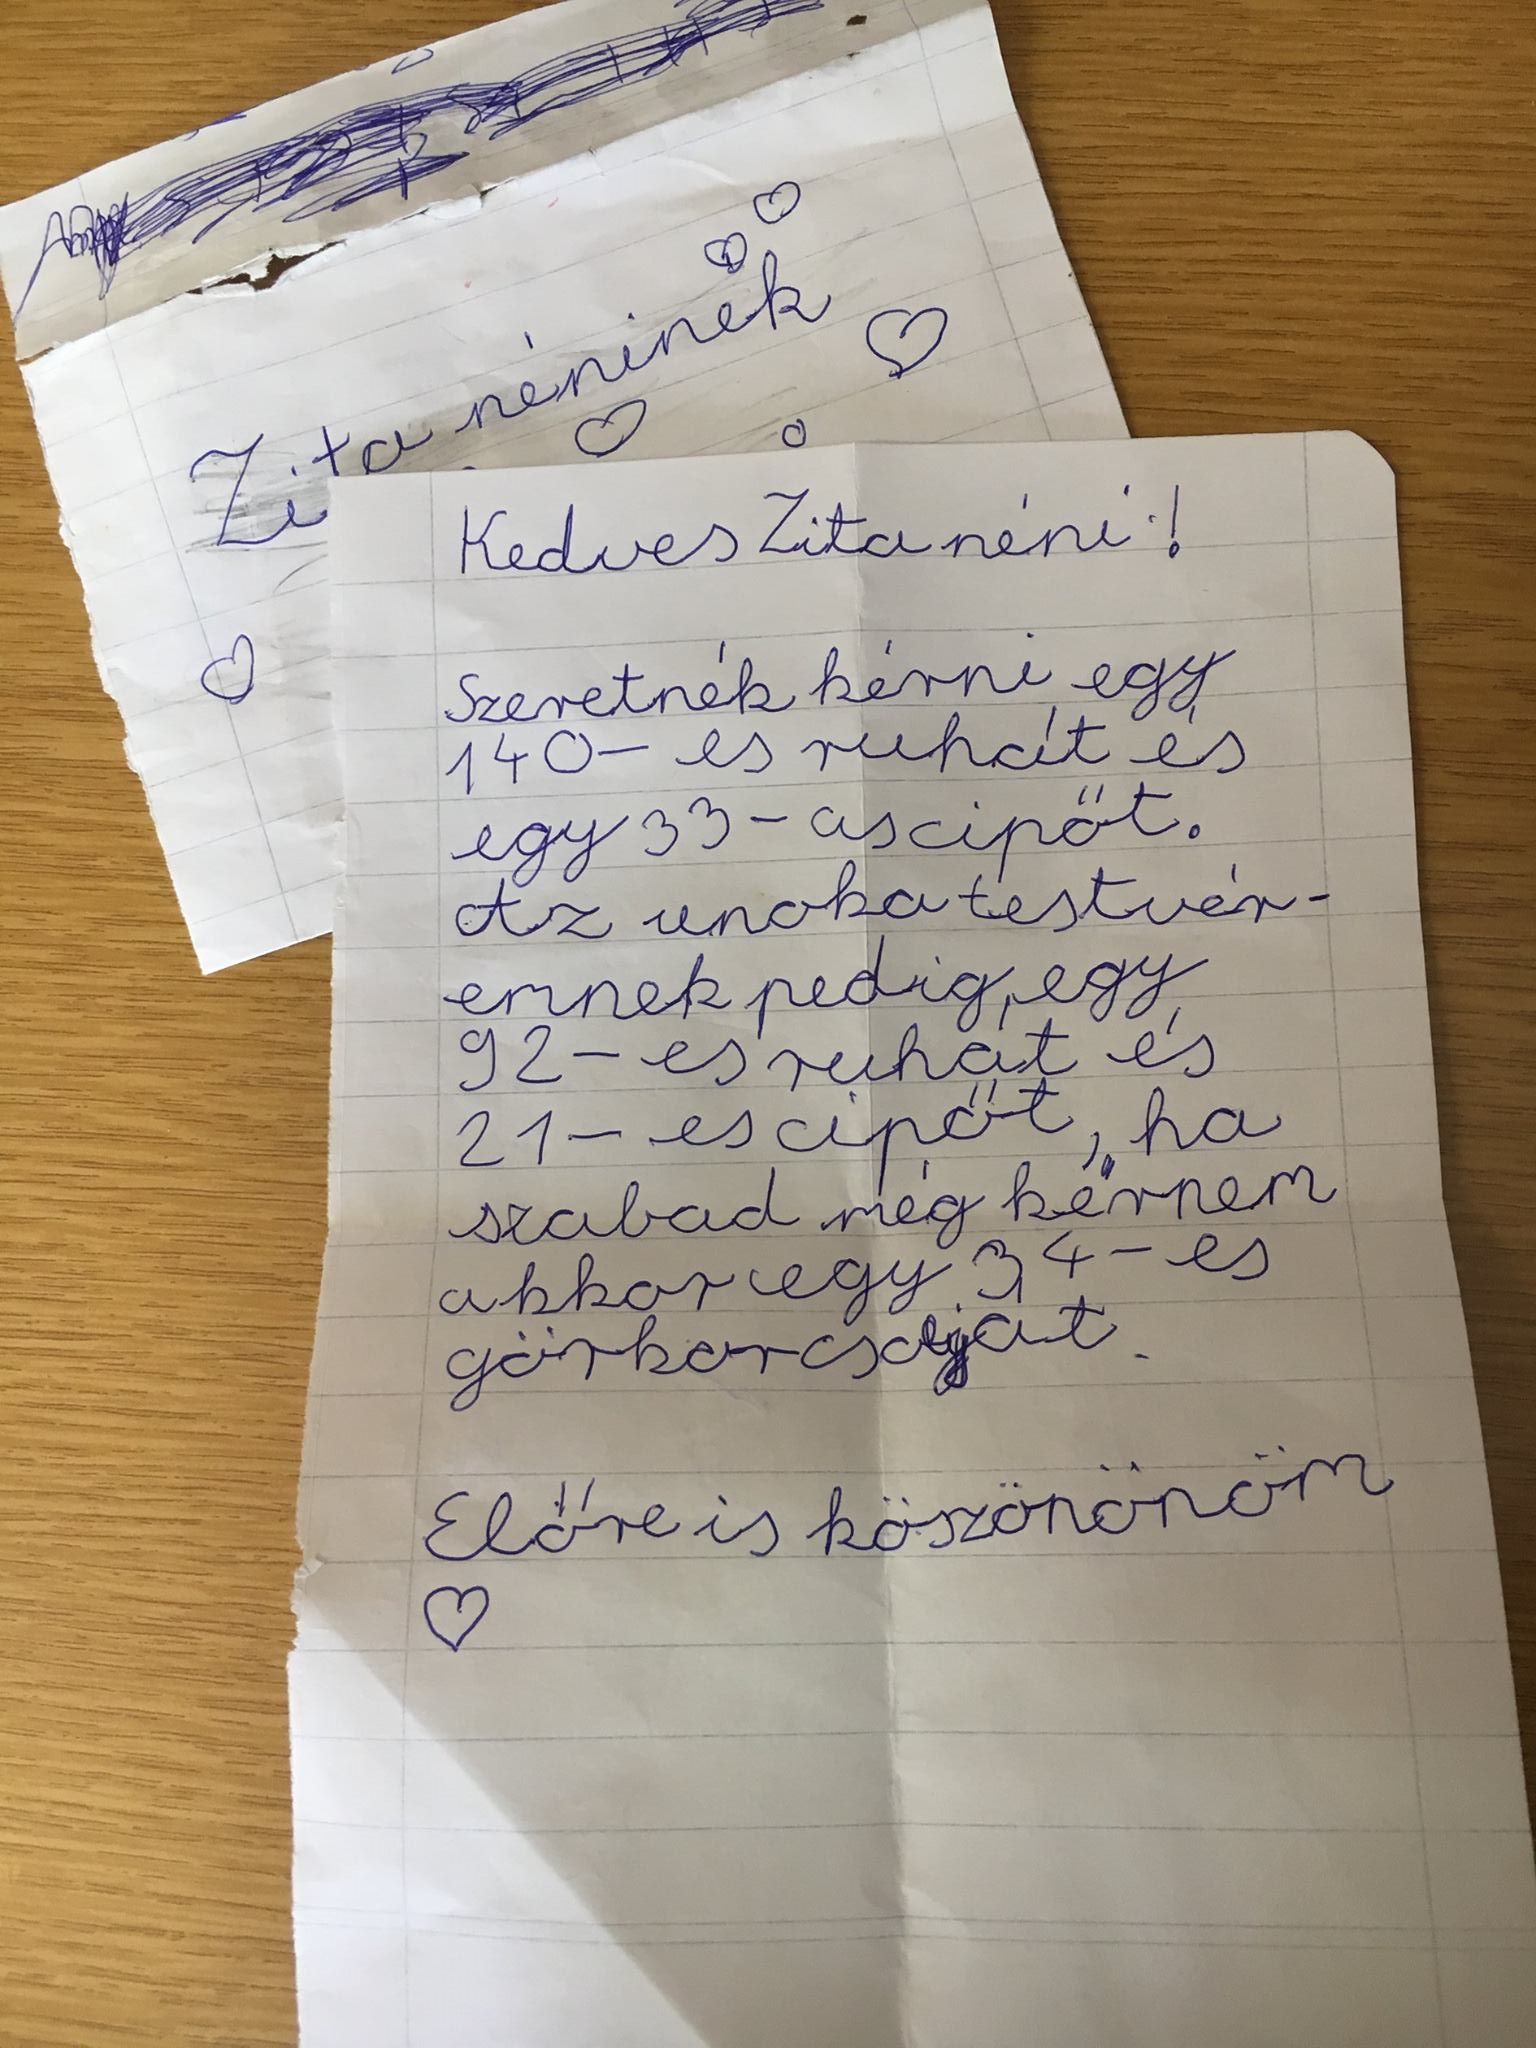 Zita néninek
Kedves Zita néni!
Szeretnék kérni egy
140-es ruhát és
egy 33-as cipőt.
Az unokatestvér-
emnek pedig, egy
92-es ruhát és
21-es cipőt, ha
szabad még kérnem
akkor egy 34-es
görkorcsoját.
Előre is köszönöm